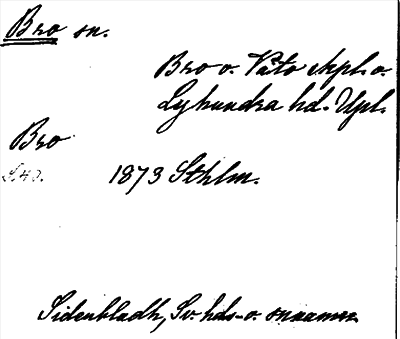 Bro sn.
Bro o. Vätö skpl. o.
Lyhundra hd. Upl.
Bro
S. 40.
1873 Sthlm.
Sidenbladh, Sv. hds- o. snnamn